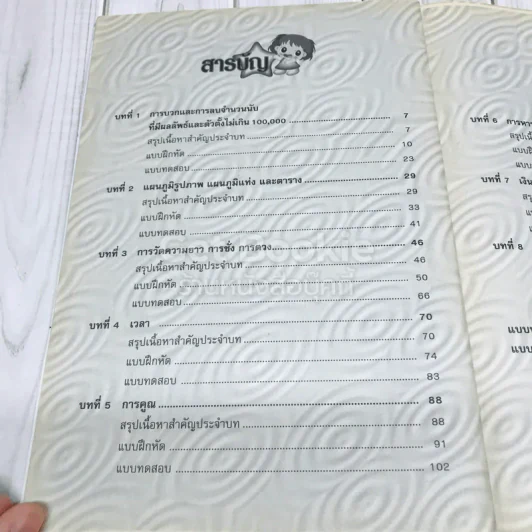 สารบัญ
บทที่ 1 การบวกและการลบจำนวนนับ
ที่มีผลลัพธ์และตัวตั้งไม่เกิน 100,000 ........ 7
สรุปเนื้อหาสำคัญประจำบท ........ 7
แบบฝึกหัด ........ 10
แบบทดสอบ ........ 23
บทที่ 2 แผนภูมิรูปภาพ แผนภูมิแท่ง และตาราง ........ 29
สรุปเนื้อหาสำคัญประจำบท ........ 29
แบบฝึกหัด ........ 33
แบบทดสอบ ........ 41
บทที่ 3 การวัดความยาว การชั่ง การตวง ........ 46
สรุปเนื้อหาสำคัญประจำบท ........ 46
แบบฝึกหัด ........ 50
แบบทดสอบ ........ 66
บทที่ 4 เวลา ........ 70
สรุปเนื้อหาสำคัญประจำบท ........ 70
แบบฝึกหัด ........ 74
แบบทดสอบ ........ 83
บทที่ 5 การคูณ ........ 88
สรุปเนื้อหาสำคัญประจำบท ........ 88
แบบฝึกหัด ........ 91
แบบทดสอบ ........ 102
บทที่ 6
สรุป
แบบฝึ
แบบท
บทที่ 7 เงิน
สรุ
แบ
แบ
บทที่ 8
แบบ
แบบ